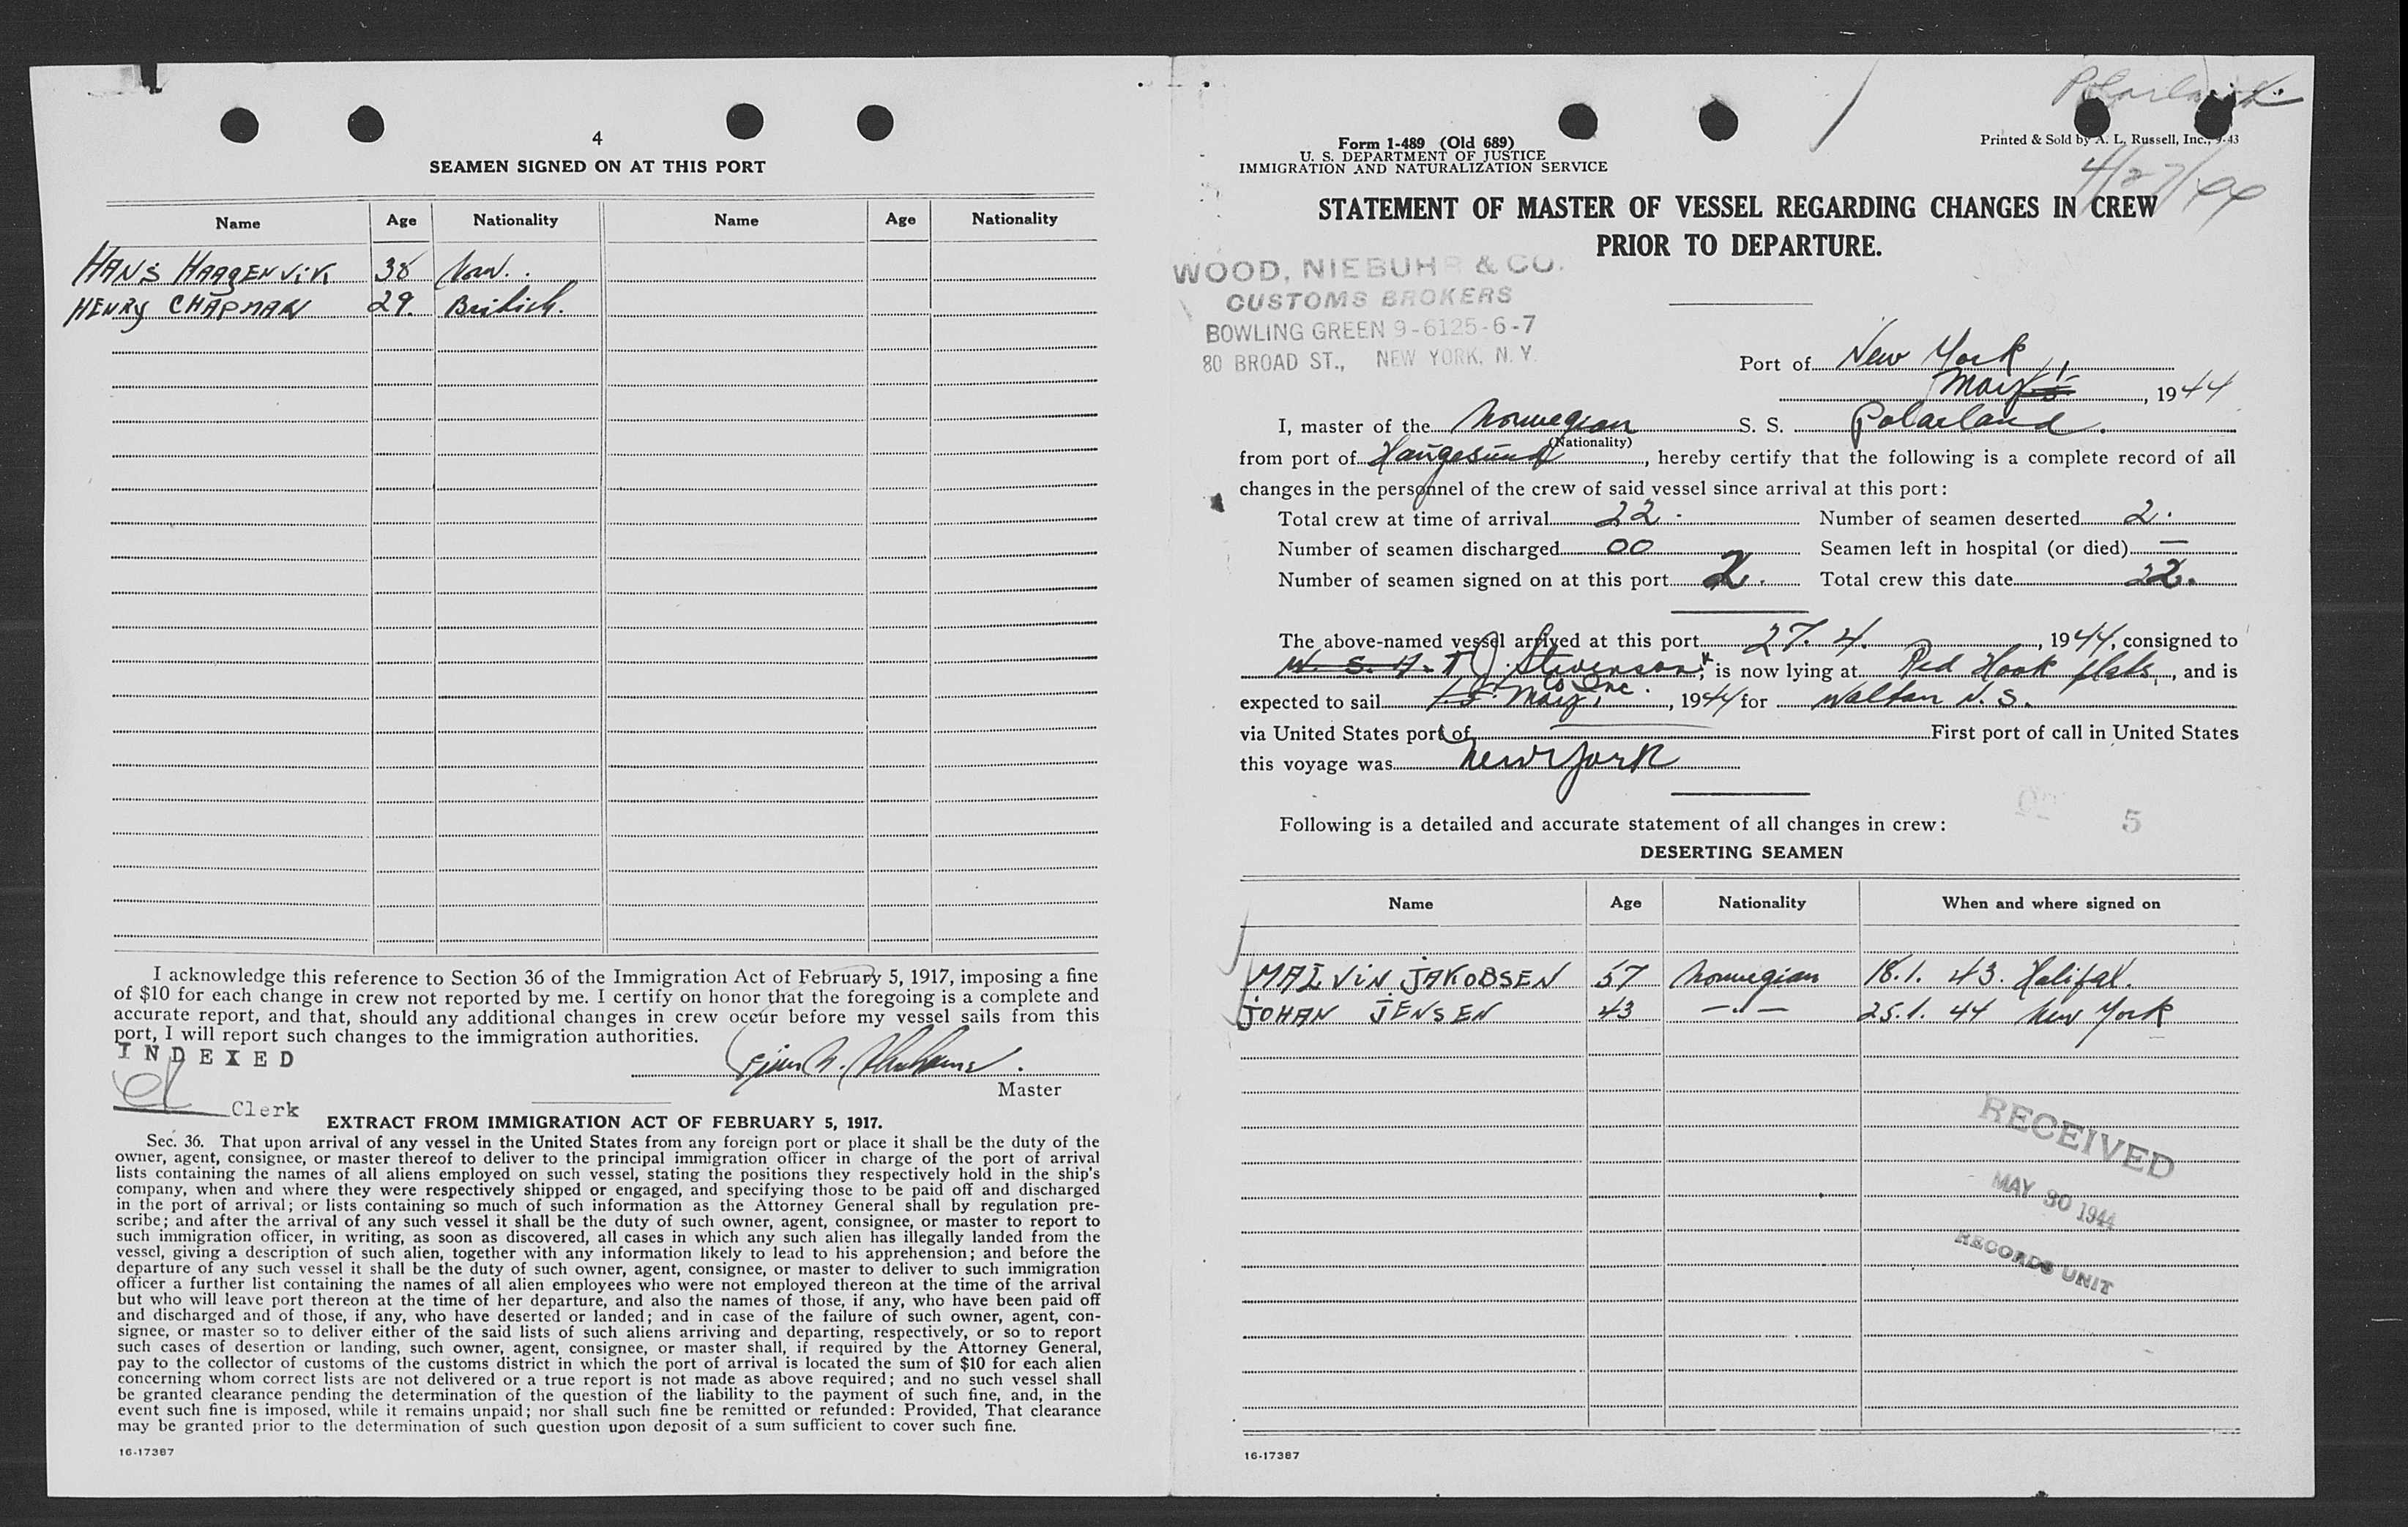 4
SEAMEN SIGNED ON AT THIS PORT
Name Age Nationality Name Age Nationality
HANS HAAGENVIK 38 Now.
HENRY CHAPMAN 29. British.
I acknowledge this reference to Section 36 of the Immigration Act of February 5, 1917, imposing a fine
of $10 for each change in crew not reported by me. I certify on honor that the foregoing is a complete and
accurate report, and that, should any additional changes in crew occur before my vessel sails from this
port, I will report such changes to the immigration authorities.
INDEXED
Master
Clerk
EXTRACT FROM IMMIGRATION ACT OF FEBRUARY 5, 1917.
Sec. 36. That upon arrival of any vessel in the United States from any foreign port or place it shall be the duty of the
owner, agent, consignee, or master thereof to deliver to the principal immigration officer in charge of the port of arrival
lists containing the names of all aliens employed on such vessel, stating the positions they respectively hold in the ship's
company, when and where they were respectively shipped or engaged, and specifying those to be paid off and discharged
in the port of arrival; or lists containing so much of such information as the Attorney General shall by regulation pre-
scribe; and after the arrival of any such vessel it shall be the duty of such owner, agent, consignee, or master to report to
such immigration officer, in writing, as soon as discovered, all cases in which any such alien has illegally landed from the
vessel, giving a description of such alien, together with any information likely to lead to his apprehension; and before the
departure of any such vessel it shall be the duty of such owner, agent, consignee, or master to deliver to such immigration
officer a further list containing the names of all alien employees who were not employed thereon at the time of the arrival
but who will leave port thereon at the time of her departure, and also the names of those, if any, who have been paid off
and discharged and of those, if any, who have deserted or landed; and in case of the failure of such owner, agent, con-
signee, or master so to deliver either of the said lists of such aliens arriving and departing, respectively, or so to report
such cases of desertion or landing, such owner, agent, consignee, or master shall, if required by the Attorney General,
pay to the collector of customs of the customs district in which the port of arrival is located the sum of $10 for each alien
concerning whom correct lists are not delivered or a true report is not made as above required; and no such vessel shall
be granted clearance pending the determination of the question of the liability to the payment of such fine, and, in the
event such fine is imposed, while it remains unpaid; nor shall such fine be remitted or refunded: Provided, That clearance
may be granted prior to the determination of such question upon deposit of a sum sufficient to cover such fine.
16-17387
Polarland
Form 1-489 (Old 689)
U. S. DEPARTMENT OF JUSTICE
IMMIGRATION AND NATURALIZATION SERVICE
Printed & Sold by A. L. Russell, Inc., 9-43
4/27/44
STATEMENT OF MASTER OF VESSEL REGARDING CHANGES IN CREW
PRIOR TO DEPARTURE.
WOOD, NIEBUHR & CO.
CUSTOMS BROKERS
BOWLING GREEN 9-6125-6-7
80 BROAD ST., NEW YORK, N. Y.
Port of New York
May 1, 1944
I, master of the Norwegian S. S. Polarland.
(Nationality)
from port of Haugesund, hereby certify that the following is a complete record of all
changes in the personnel of the crew of said vessel since arrival at this port:
Total crew at time of arrival 22. Number of seamen deserted 2.
Number of seamen discharged 00 Seamen left in hospital (or died) —
Number of seamen signed on at this port 2. Total crew this date 22.
The above-named vessel arrived at this port 27. 4., 1944, consigned to
W. S. A. T J. Stevenson, is now lying at Red Hook flats, and is
Co Inc.
expected to sail May, 1944 for Walton N. S.
via United States port of First port of call in United States
this voyage was New York
5
Following is a detailed and accurate statement of all changes in crew:
DESERTING SEAMEN
Name Age Nationality When and where signed on
MALVIN JAKOBSEN 57 Norwegian 18.1. 43. Halifax.
JOHAN JENSEN 43 —"— 25.1. 44 New York
RECEIVED
MAY 30 1944
RECORDS UNIT
16-17387